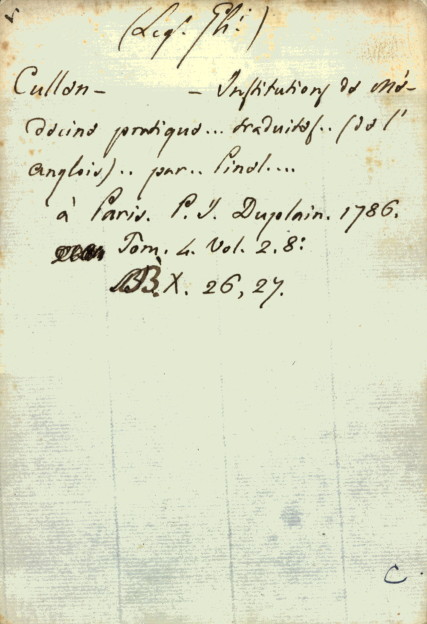 (Leg. Ghi.)
Cullen — — Institutions de Mé-
decine pratique... traduites.. (de l'
anglois).. par.. Pinel....
à Paris. P. J. Duplain. 1786.
Tom. 4. Vol. 2. 8:
B. X. 26, 27.
C